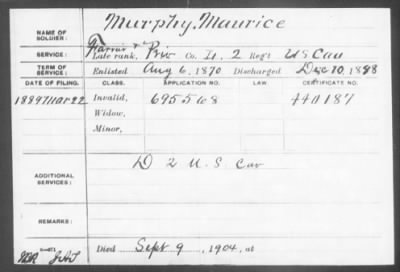 NAME OF SOLDIER: Murphy, Maurice
SERVICE: Farrier & Late rank, Priv Co. D, 2 Reg't US Cav
TERM OF SERVICE: Enlisted Aug 6, 1870 Discharged Dec 10, 1888
DATE OF FILING. CLASS. APPLICATION NO. LAW CERTIFICATE NO.
1889 Mar 22 Invalid, 695568 440187
Widow,
Minor,
ADDITIONAL SERVICES: D 2 U.S. Cav
REMARKS:
Died Sept 9, 1904, at